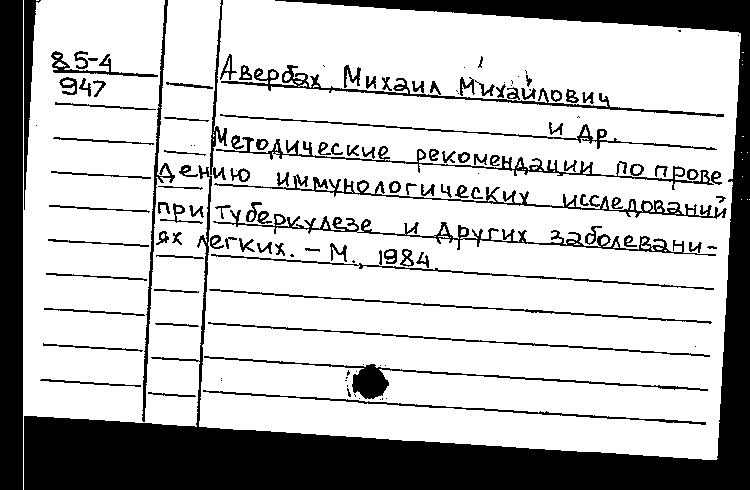 85-4
947
Авербах, Михаил Михайлович
и др.
Методические рекомендации по прове-
дению иммунологических исследований
при туберкулезе и других заболевани-
ях легких. – М., 1984.